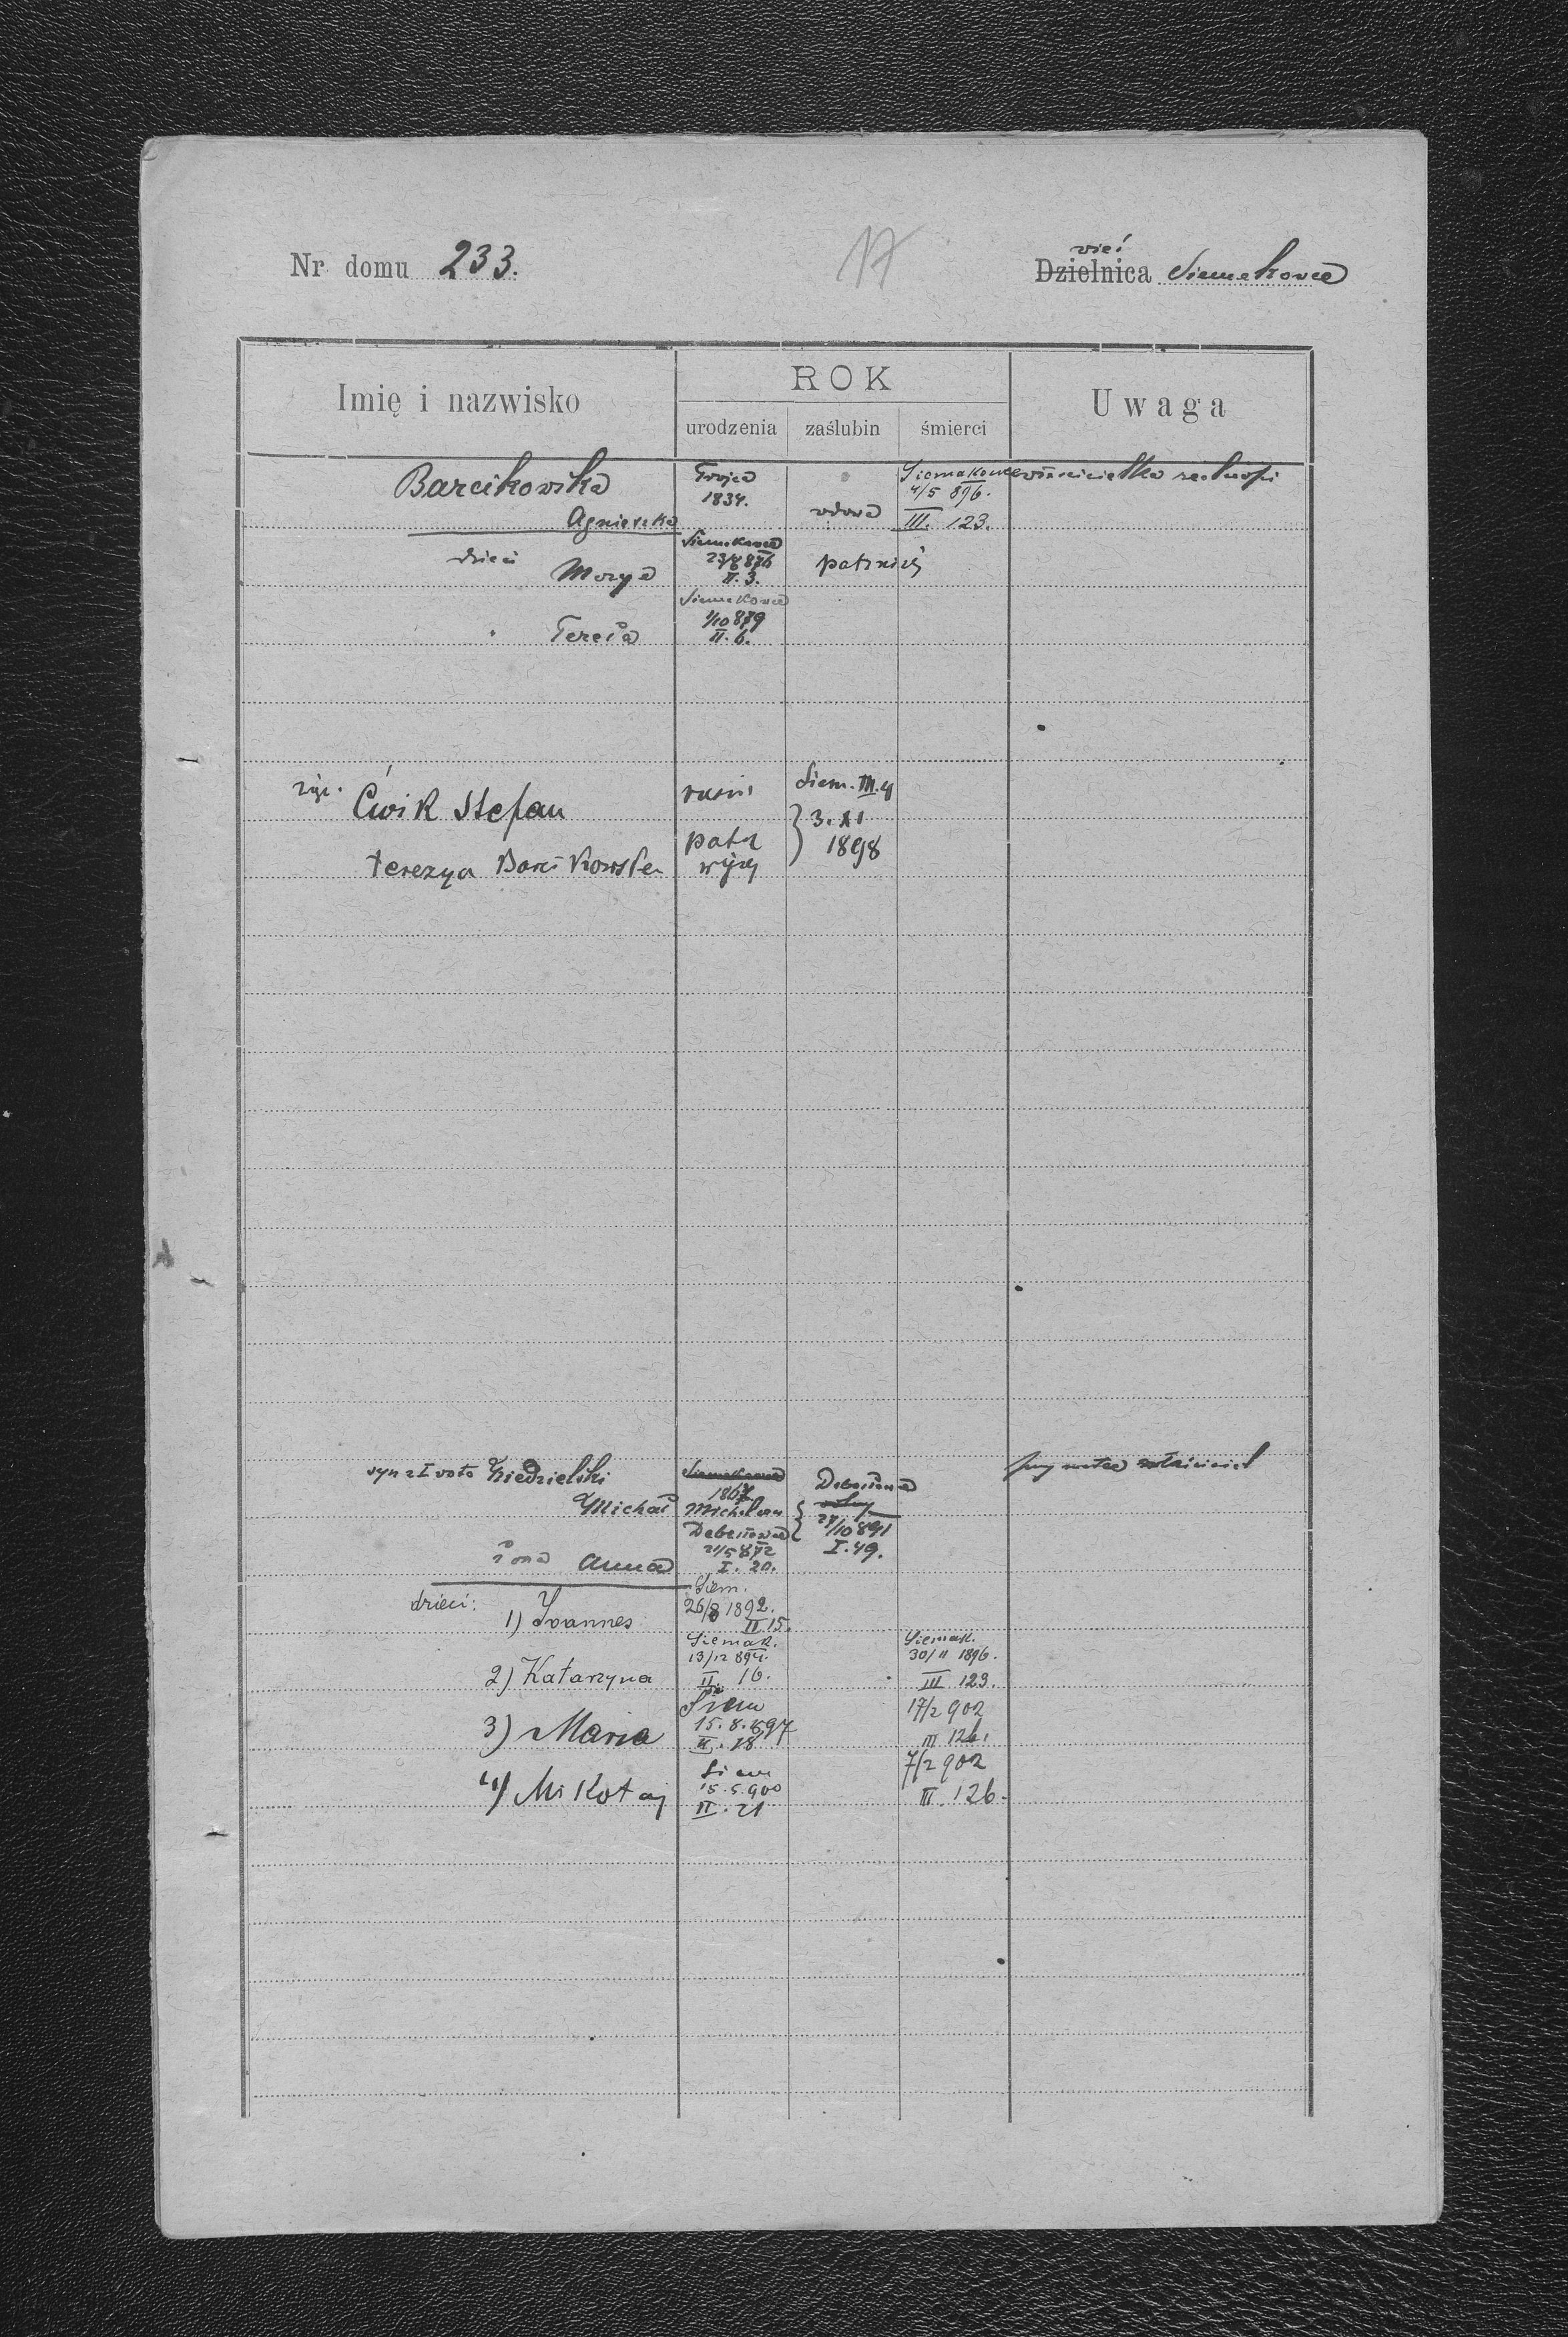 Nr domu 233.
17
wieś
Dzielnica Siemakowce
Imię i nazwisko
ROK
urodzenia
zaślubin
śmierci
Uwaga
Barcikowska
Agnieszka
Trójca
1834.
wdowa
Siemakowce
4/5 896.
III. 123.
właścicielka
dzieci
Marya
Siemakowce
876
II. 3.
patrz niżej
Teresa
Siemakowce
1/10 879
II. 6.
Ćwik Stefan
Siem. III. 4
Terezya Barcikowska
patrz
wyżej
3. XI
1898
syn z I voto Niedzielski
Michał
Siemakowce
1867
Michalcze
Debesławce
27/10 891
I. 49.
żona Anna
Debesławce
21/5 872
I. 20.
dzieci:
1) Joannes
Siem.
26/8 1892.
II 15.
2) Katarzyna
Siemak.
13/12 894.
II. 16.
Siemak.
30/11 1896.
III 123.
3) Maria
Siem
15.8.897
II. 18
17/2 902
III 126.
4) Mikołaj
Siem
15.5.900
II. 21
7/2 902
III. 126.